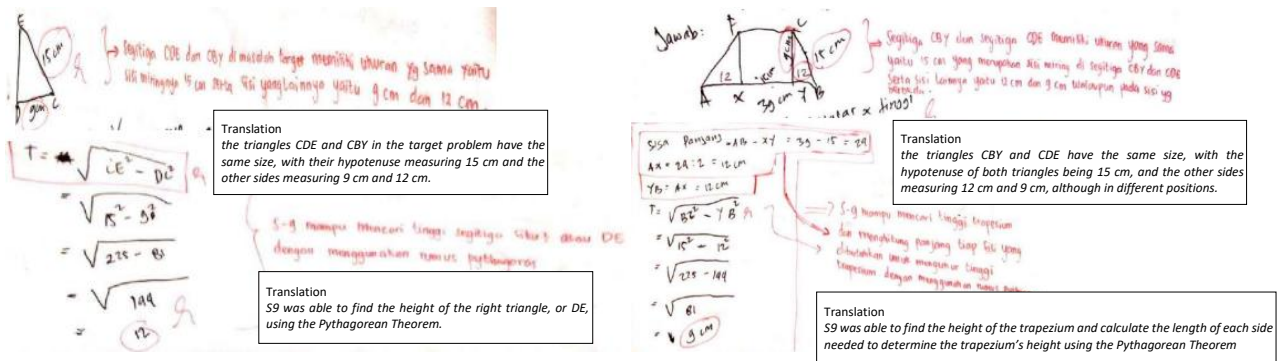 E
15 cm
D 9cm C
Segitiga CDE dan CBY di masalah target memiliki ukuran yg sama yaitu
sisi miringnya 15 cm serta sisi yang lainnya yaitu 9 cm dan 12 cm.
Translation
the triangles CDE and CBY in the target problem have the
same size, with their hypotenuse measuring 15 cm and the
other sides measuring 9 cm and 12 cm.
T = √CE² - DC²
= √15² - 9²
= √225 - 81
= √144
= 12
S-9 mampu mencari tinggi segitiga siku2 atau DE
dengan menggunakan rumus pythagoras
Translation
S9 was able to find the height of the right triangle, or DE,
using the Pythagorean Theorem.
Jawab:
C
9cm 15 cm
12 12
A X 39 cm Y B
x tinggi
Segitiga CBY dan segitiga CDE memiliki ukuran yang sama
yaitu 15 cm yang merupakan sisi miring di segitiga CBY dan CDE
serta sisi lainnya yaitu 12 cm dan 9 cm walaupun pada sisi yg
berbeda.
Translation
the triangles CBY and CDE have the same size, with the
hypotenuse of both triangles being 15 cm, and the other sides
measuring 12 cm and 9 cm, although in different positions.
Sisa Panjang = AB - XY = 39 - 15 = 24
AX = 24 : 2 = 12 cm
YB = AX = 12 cm
= √15² - 12²
= √225 - 144
= √81
= 9 cm
S-9 mampu mencari tinggi trapesium
dan menghitung panjang tiap sisi yang
dibutuhkan untuk mengukur tinggi
trapesium dengan menggunakan rumus
Translation
S9 was able to find the height of the trapezium and calculate the length of each side
needed to determine the trapezium's height using the Pythagorean Theorem